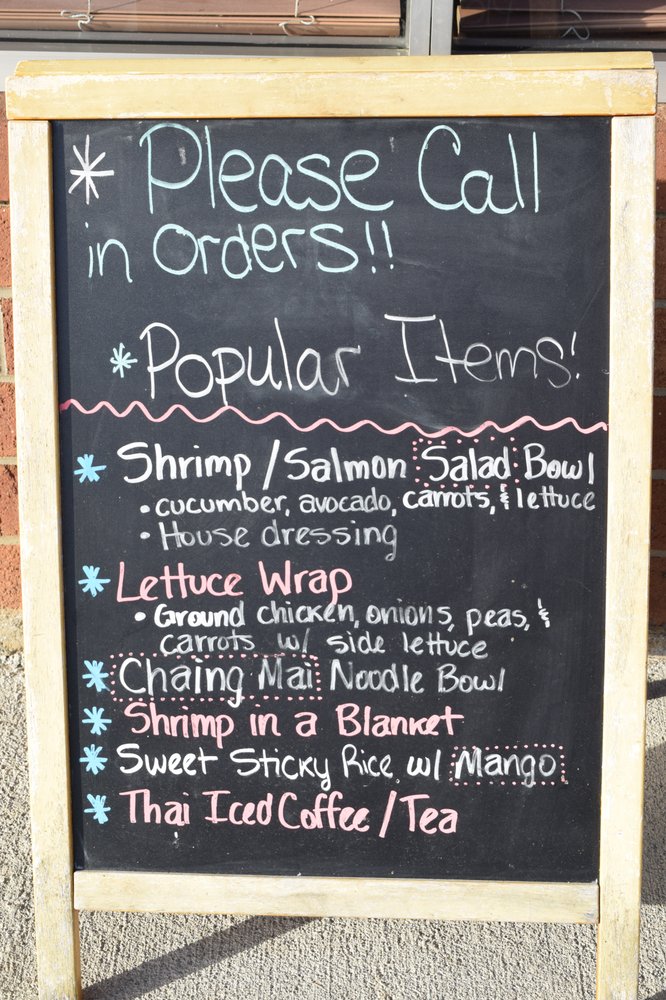 * Please Call
in orders!!
* Popular Items!
* Shrimp/Salmon Salad Bowl
• cucumber, avocado, carrots, & lettuce
• House dressing
* Lettuce Wrap
• Ground chicken, onions, peas, &
carrots w/ side lettuce
* Chaing Mai Noodle Bowl
* Shrimp in a Blanket
* Sweet Sticky Rice w/ Mango
* Thai Iced Coffee/Tea